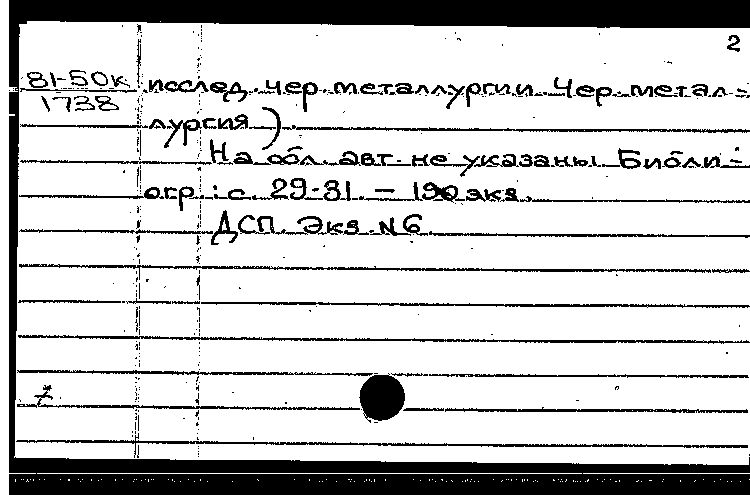 2
81-50к
1738
исслед. чер. металлургии. Чер. метал-
лургия).
На обл. авт. не указаны. Библи-
огр.: с. 29-31. - 190 экз.
ДСП. Экз. N6.